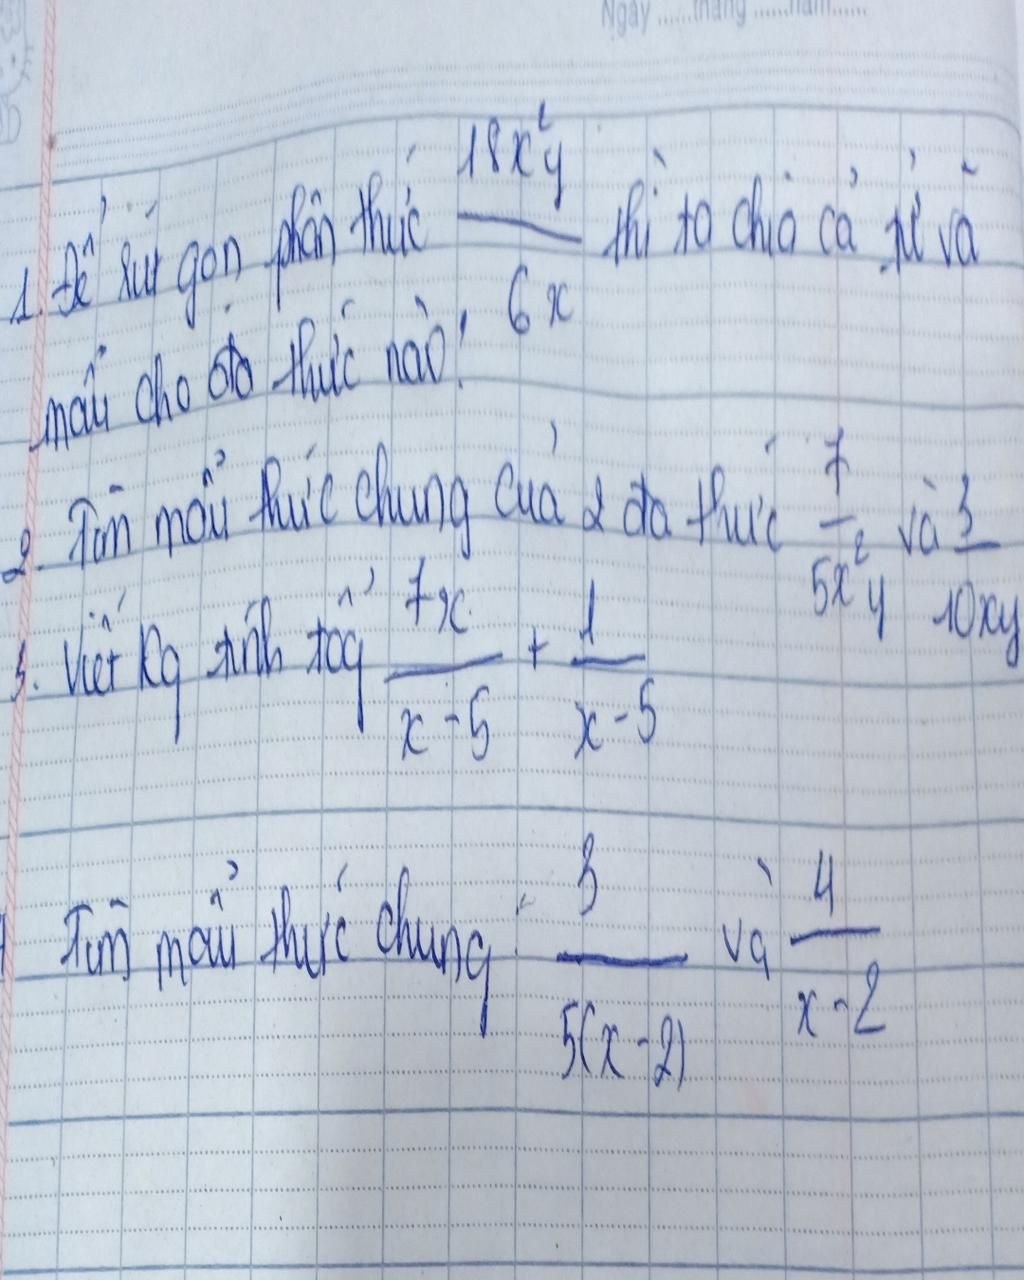 Ngày ......tháng ......năm......
1. Để rút gọn phân thức 18x²y / 6x thì ta chia cả tử và
mẫu cho đa thức nào?
2. Tìm mẫu thức chung của 2 đa thức 7 / 5x²y và 3 / 10xy
3. Viết kq tính tổng 7x / x-5 + 1 / x-5
Tìm mẫu thức chung : 3 / 5(x-2) và 4 / x-2